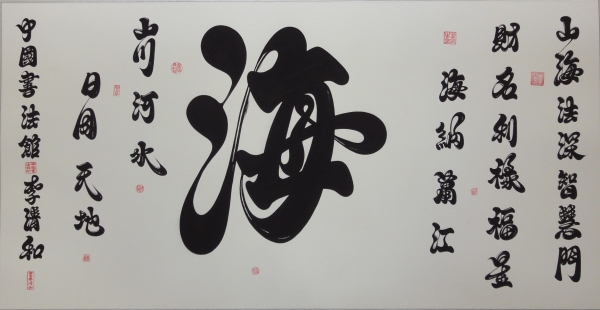 山海法深智慧門
財名利祿福星
海納萬江
海
山川河水
日月天地
中國書法館 李濟和